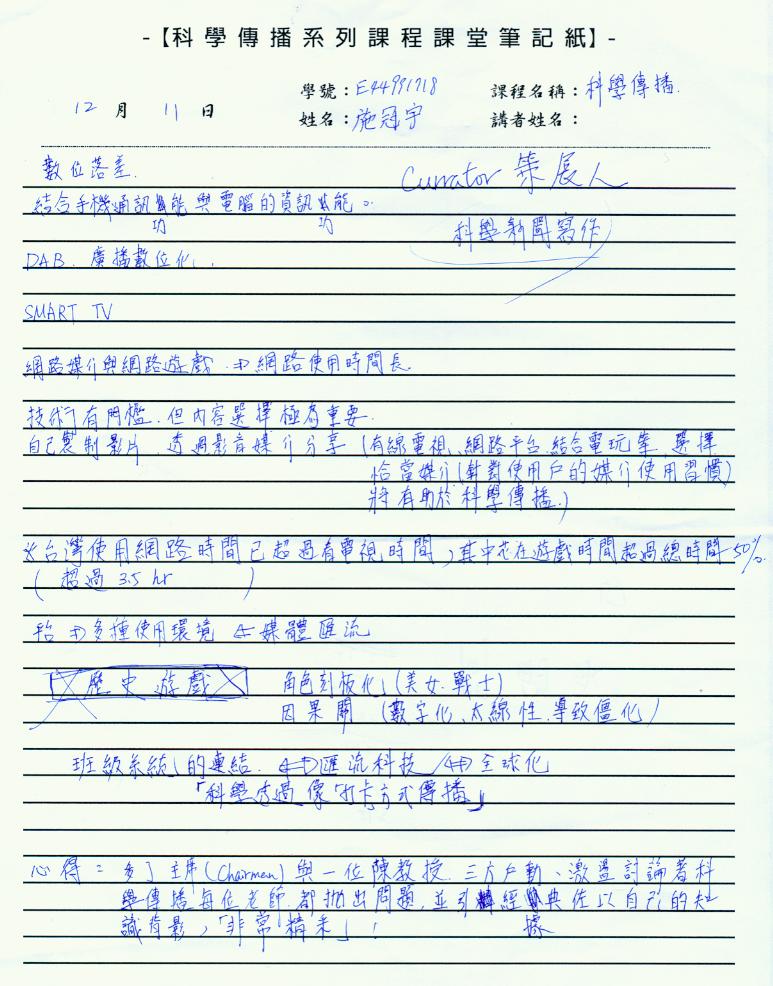 -【科學傳播系列課程課堂筆記紙】-
學號：E44991718 課程名稱：科學傳播.
12 月 11 日 姓名：施冠宇 講者姓名：
數位落差. Currator 策展人
結合手機通訊功能與電腦的資訊功能。
科學新聞寫作
DAB. 廣播數位化
SMART TV
網路媒介與網路遊戲 ⇒ 網路使用時間長
技術有門檻. 但內容選擇極為重要.
自己製制影片. 透過影音媒介分享 (有線電視、網路平台、結合電玩等. 選擇
恰當媒介(針對使用戶的媒介使用習慣)
將有助於科學傳播.)
※台灣使用網路時間已超過看電視時間, 其中花在遊戲時間超過總時間 50%.
( 超過 3.5 hr )
⇒ 多種使用環境 ⇐ 媒體匯流
歷史遊戲 角色刻板化 (美女. 戰士)
因果關 (數字化、太線性. 導致僵化)
班級系統的連結. ⇔ 匯流科技 ⇔ 全球化
「科學透過像打卡方式傳播」
心得： 多了主席(Chairmen)與一位陳教授. 三方互動、激盪討論著科
學傳播每位老師都拋出問題, 並引經據典佐以自己的知
識背影, 「非常精采」!